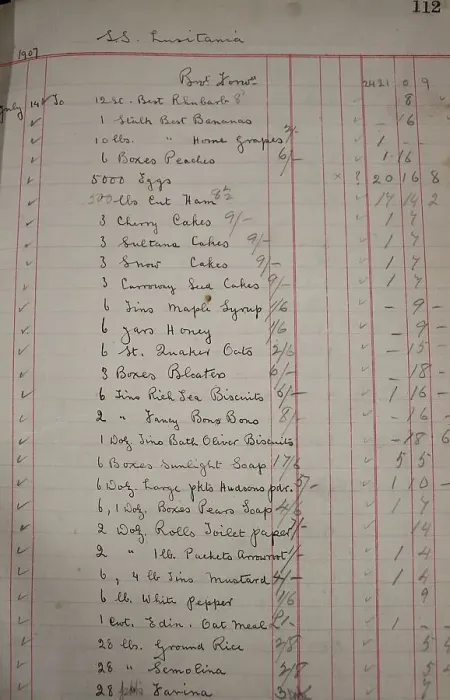 112
S.S. Lusitania
1907
Brot Forwd 2421 0 9
July 14 To 12 St. Best Rhubarb 8d 8
1 Stalk Best Bananas - 16 -
10 lbs. " Home Grapes 2/- 1 - -
6 Boxes Peaches 6/- 1 16
5000 Eggs x ? 20 16 8
500 lbs Cut Ham 8½ 17 14 2
3 Cherry Cakes 9/- 1 7
3 Sultana Cakes 9/- 1 7
3 Snow Cakes 9/- 1 7
3 Carroway Seed Cakes 9/- 1 7
6 Tins Maple Syrup 1/6 - 9 -
6 Jars Honey 1/6 - 9 -
6 St. Quaker Oats 2/6 - 15 -
3 Boxes Bloaters 6/- - 18 -
6 Tins Rich Tea Biscuits 6/- 1 16 -
2 " Fancy Bons Bons 8/- - 16 -
1 Doz Tins Bath Oliver Biscuits - 18 6
6 Boxes Sunlight Soap 17/6 5 5
6 Doz. Large pkts Hudsons pdr. 5/- 1 10 -
6, 1 Doz. Boxes Pears Soap 4/6 1 7
2 Doz. Rolls Toilet paper 7/- 14
2 " 1 lb. Packets Arrowroot 1/- 1 4
6, 4 lb Tins Mustard 4/- 1 4
6 lb. White Pepper 1/6 9
1 Cwt. Edin. Oat Meal £1- 1 - -
28 lbs. Ground Rice 2/8 5 4
28 " Semolina 2/8 5
28 Farina